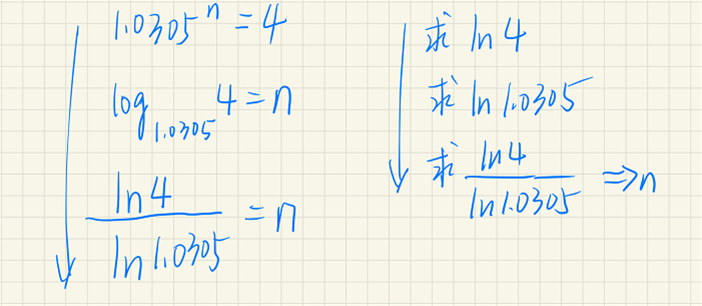 1.0305^n = 4
log_{1.0305} 4 = n
\frac{ln 4}{ln 1.0305} = n
求 ln 4
求 ln 1.0305
求 \frac{ln 4}{ln 1.0305} ⇒ n